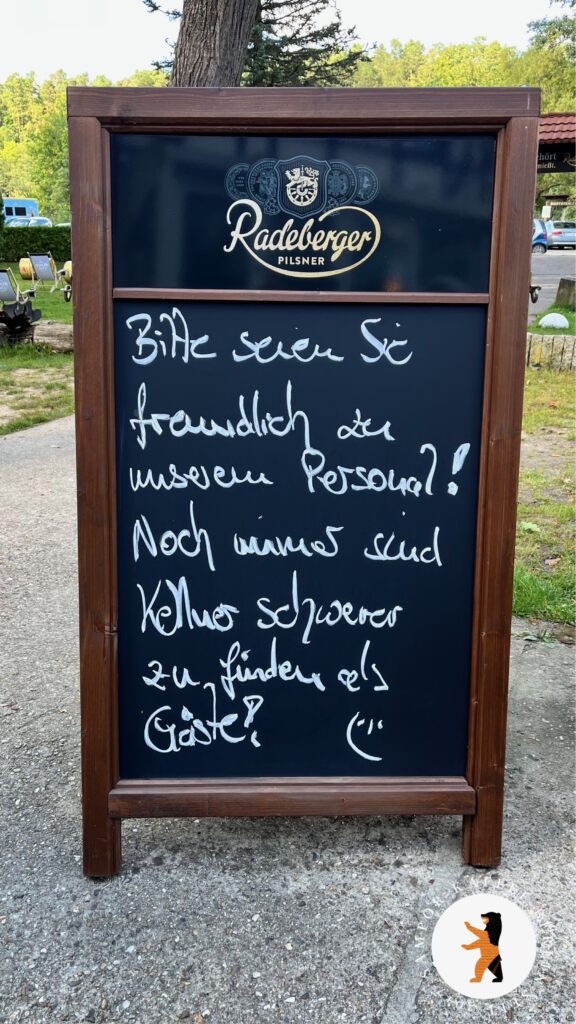 Radeberger
PILSNER
Bitte seien Sie
freundlich zu
unserem Personal!
Noch immer sind
Kellner schwerer
zu finden als
Gäste!